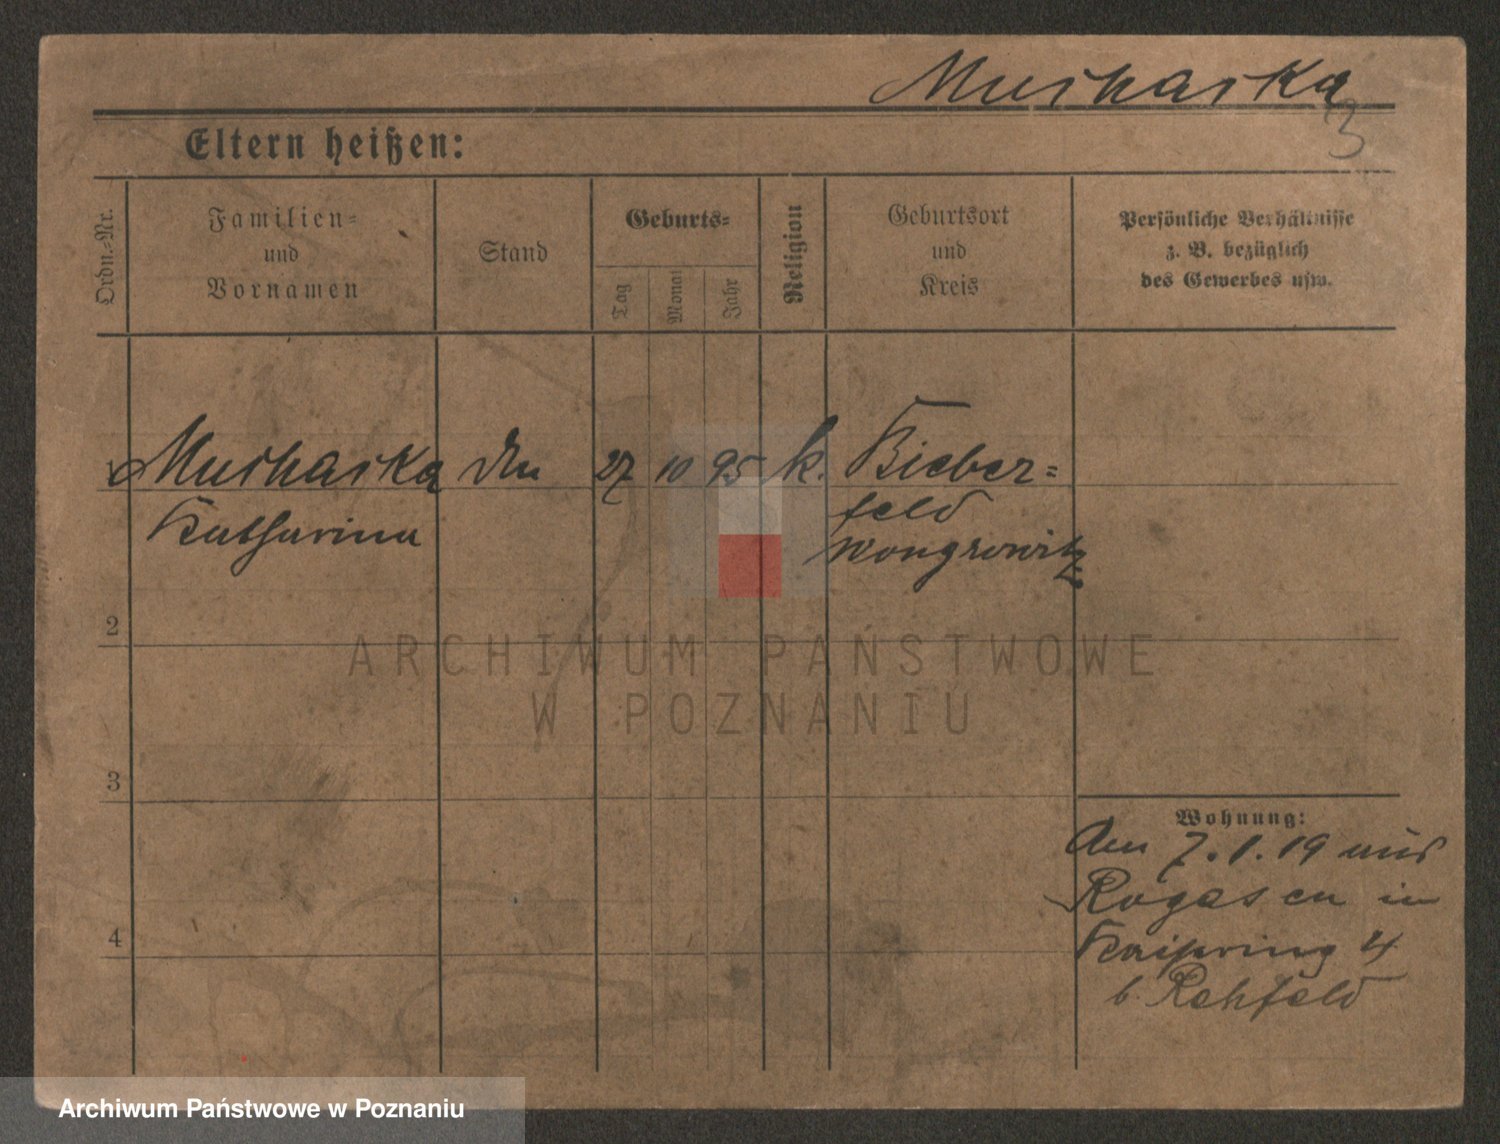 Murharka
3
Eltern heißen:
Ordn.-Nr.
Familien-
und
Vornamen
Stand
Geburts-
Tag
Monat
Jahr
Religion
Geburtsort
und
Kreis
Persönliche Verhältnisse
z. B. bezüglich
des Gewerbes usw.
1 27 10 95 k. Bieber-
Katharina feld
Wongrowitz
2
3
4
Wohnung:
Am 7.1.19 aus
Rogasen in
4
b. Rehfeld
ARCHIWUM PAŃSTWOWE
W POZNANIU
Archiwum Państwowe w Poznaniu